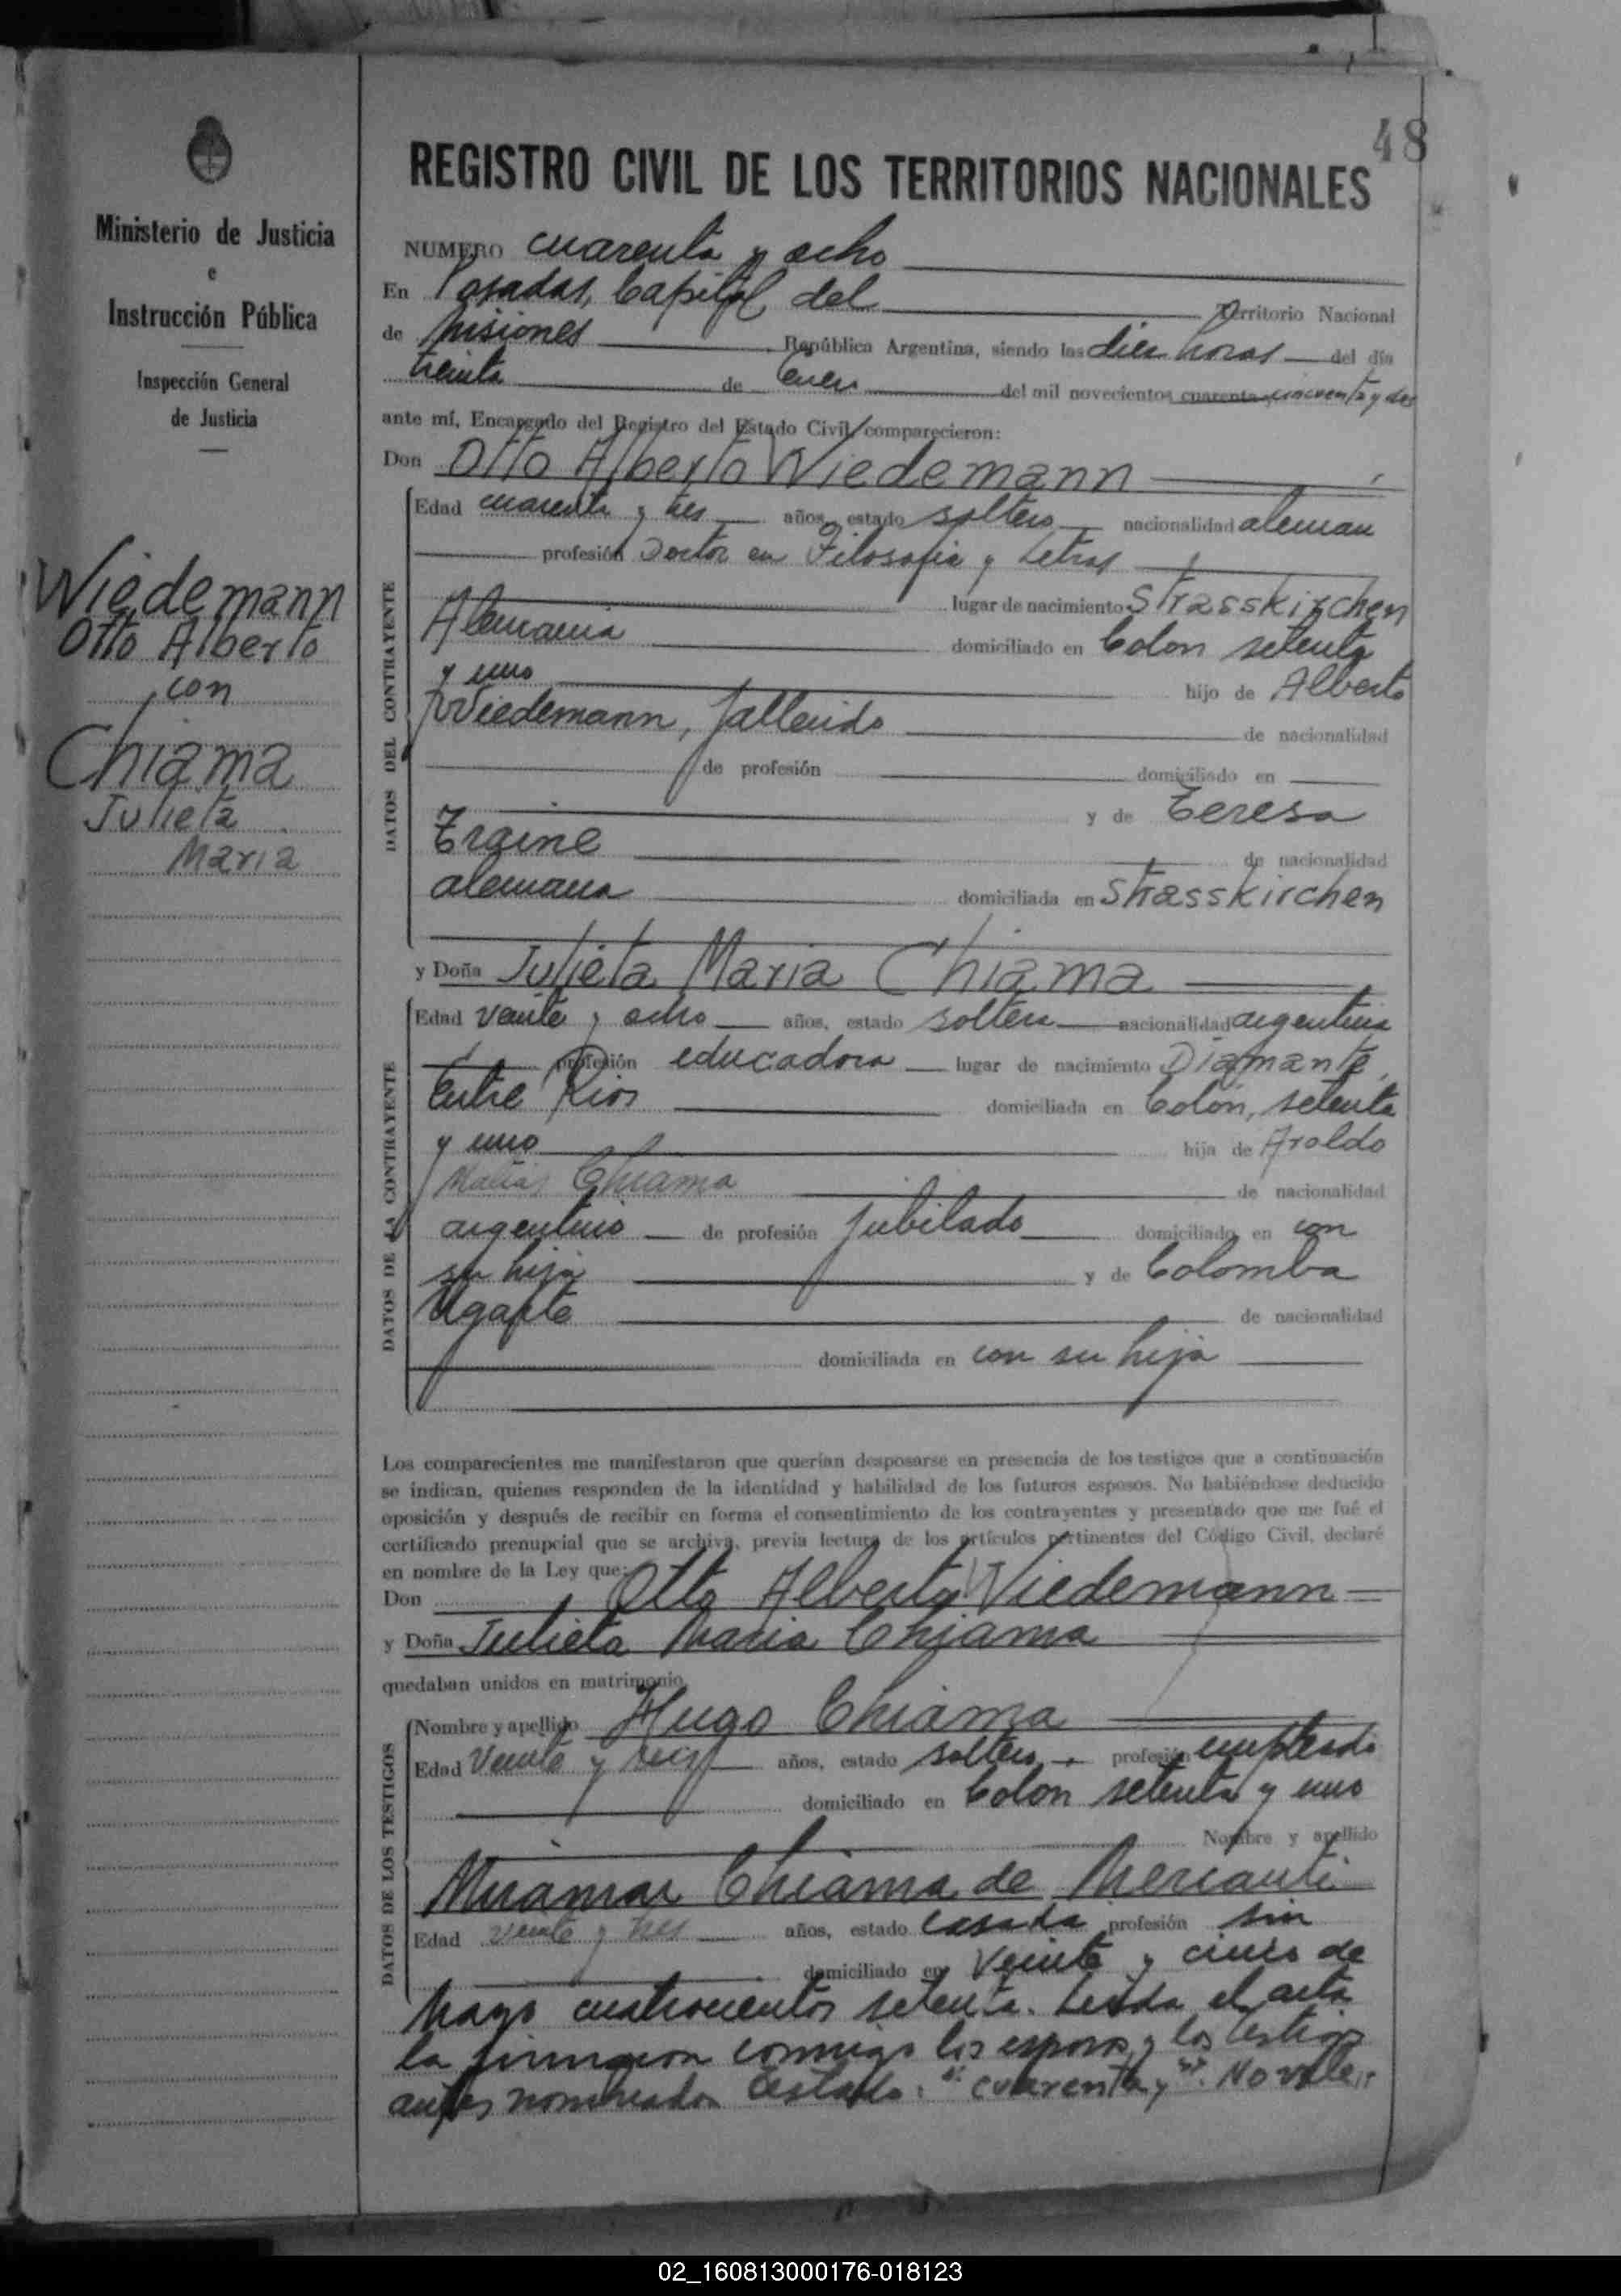 48
Ministerio de Justicia
e
Instrucción Pública
Inspección General
de Justicia
Wiedemann
Otto Alberto
con
Chiama
Julieta
Maria
REGISTRO CIVIL DE LOS TERRITORIOS NACIONALES
NUMERO cuarenta y ocho
En Posadas, Capital del Territorio Nacional
de Misiones República Argentina, siendo las diez horas del día
treinta de enero del mil novecientos cuarenta cincuenta y dos
ante mí, Encargado del Registro del Estado Civil, comparecieron:
Don Otto Alberto Wiedemann
DATOS DEL CONTRAYENTE
Edad cuarenta y tres años, estado soltero nacionalidad aleman
profesión Doctor en Filosofia y Letras
lugar de nacimiento Strasskirchen
Alemania domiciliado en Colon setenta
y uno hijo de Alberto
Wiedemann, fallecido de nacionalidad
de profesión domiciliado en
y de Teresa
Traine de nacionalidad
alemana domiciliada en Strasskirchen
y Doña Julieta Maria Chiama
DATOS DE LA CONTRAYENTE
Edad veinte y ocho años, estado soltera nacionalidad argentina
profesión educadora lugar de nacimiento Diamante,
Entre Rios domiciliada en Colón, setenta
y uno hija de Aroldo
Matias Chiama de nacionalidad
argentino de profesión jubilado domiciliado en con
su hija y de Colomba
Ugarte de nacionalidad
domiciliada en con su hija
Los comparecientes me manifestaron que querían desposarse en presencia de los testigos que a continuación
se indican, quienes responden de la identidad y habilidad de los futuros esposos. No habiéndose deducido
oposición y después de recibir en forma el consentimiento de los contrayentes y presentado que me fué el
certificado prenupcial que se archiva, previa lectura de los artículos pertinentes del Código Civil, declaré
en nombre de la Ley que:
Don Otto Alberto Wiedemann
y Doña Julieta Maria Chiama
quedaban unidos en matrimonio
DATOS DE LOS TESTIGOS
Nombre y apellido Hugo Chiama
Edad Veinte y seis años, estado soltero profesión empleado
domiciliado en Colon setenta y uno
Nombre y apellido
Miramar Chiama de Mercanti
Edad veinte y tres años, estado casada profesión sin
domiciliado en Veinte y cinco de
Mayo cuatrocientos setenta. Leida el acta
la firmaron conmigo los esposos y los testigos
antes nombrados Testado: "cuarenta y". No vale.
02_160813000176-018123